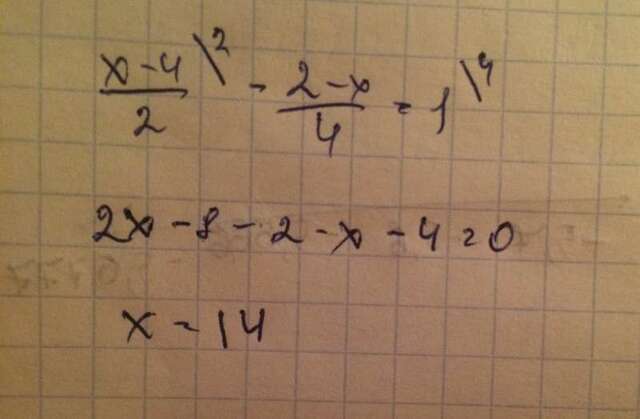 x-4/2 \2 - 2-x/4 = 1 \4
2x - 8 - 2 - x - 4 = 0
x = 14